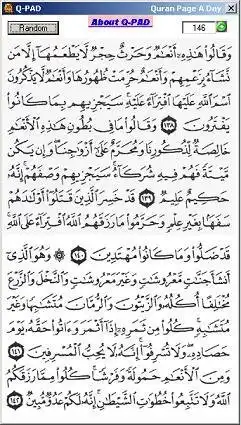 Q-PAD Quran Page A Day
Random About Q-PAD 146
وَقَالُوا۟ هَٰذِهِۦٓ أَنْعَٰمٌ وَحَرْثٌ حِجْرٌ لَّا يَطْعَمُهَآ إِلَّا مَن
نَّشَآءُ بِزَعْمِهِمْ وَأَنْعَٰمٌ حُرِّمَتْ ظُهُورُهَا وَأَنْعَٰمٌ لَّا يَذْكُرُونَ
ٱسْمَ ٱللَّهِ عَلَيْهَا ٱفْتِرَآءً عَلَيْهِ ۚ سَيَجْزِيهِم بِمَا كَانُوا۟
يَفْتَرُونَ ١٣٨ وَقَالُوا۟ مَا فِى بُطُونِ هَٰذِهِ ٱلْأَنْعَٰمِ
خَالِصَةٌ لِّذُكُورِنَا وَمُحَرَّمٌ عَلَىٰٓ أَزْوَٰجِنَا ۖ وَإِن يَكُن
مَّيْتَةً فَهُمْ فِيهِ شُرَكَآءُ ۚ سَيَجْزِيهِمْ وَصْفَهُمْ ۚ إِنَّهُۥ
حَكِيمٌ عَلِيمٌ ١٣٩ قَدْ خَسِرَ ٱلَّذِينَ قَتَلُوٓا۟ أَوْلَٰدَهُمْ
سَفَهًۢا بِغَيْرِ عِلْمٍ وَحَرَّمُوا۟ مَا رَزَقَهُمُ ٱللَّهُ ٱفْتِرَآءً عَلَى ٱللَّهِ ۚ
قَدْ ضَلُّوا۟ وَمَا كَانُوا۟ مُهْتَدِينَ ١٤٠ ۞ وَهُوَ ٱلَّذِىٓ
أَنشَأَ جَنَّٰتٍ مَّعْرُوشَٰتٍ وَغَيْرَ مَعْرُوشَٰتٍ وَٱلنَّخْلَ وَٱلزَّرْعَ
مُخْتَلِفًا أُكُلُهُۥ وَٱلزَّيْتُونَ وَٱلرُّمَّانَ مُتَشَٰبِهًا وَغَيْرَ
مُتَشَٰبِهٍ ۚ كُلُوا۟ مِن ثَمَرِهِۦٓ إِذَآ أَثْمَرَ وَءَاتُوا۟ حَقَّهُۥ يَوْمَ
حَصَادِهِۦ ۖ وَلَا تُسْرِفُوٓا۟ ۚ إِنَّهُۥ لَا يُحِبُّ ٱلْمُسْرِفِينَ ١٤١
وَمِنَ ٱلْأَنْعَٰمِ حَمُولَةً وَفَرْشًا ۚ كُلُوا۟ مِمَّا رَزَقَكُمُ
ٱللَّهُ وَلَا تَتَّبِعُوا۟ خُطُوَٰتِ ٱلشَّيْطَٰنِ ۚ إِنَّهُۥ لَكُمْ عَدُوٌّ مُّبِينٌ ١٤٢